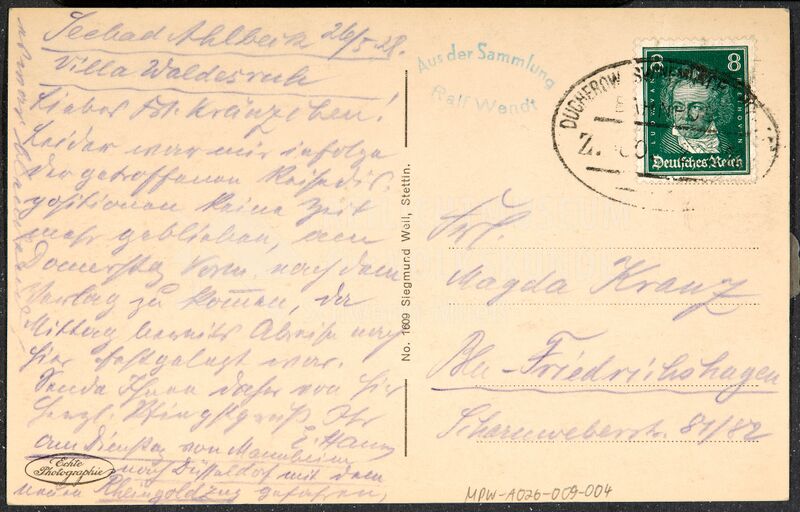 Seebad Ahlbeck 26/5.28.
Villa Waldesruh
Liebes Frl. Kränzchen!
Leider war mir infolge
der getroffenen Reisedis-
positionen keine Zeit
mehr geblieben, am
Donnerstag Vorm. nach dem
Verlag zu kommen, da
Mittag bereits Abreise nach
hier festgelegt war.
Sende Ihnen daher von hier
herzl. Pfingstgruß Ihr
am Dienstag von Mannheim
nach Düsseldorf mit dem
neuen Rheingoldzug gefahren,
Echte
Photographie
No. 1609 Siegmund Weil, Stettin.
Aus der Sammlung
Ralf Wendt
8 8
LUDWIG VAN BEETHOVEN
Deutsches Reich
DUCHEROW
Z.
Frl.
Magda Kranz
Bln-Friedrichshagen
Scharnweberstr. 81/82
MPW-A026-009-004